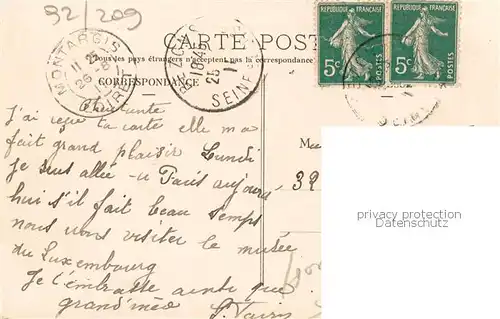 92/209
CARTE POST
RÉPUBLIQUE FRANÇAISE
RÉPUBLIQUE FRANÇAISE
5c POSTES
5c POSTES
Tous les pays étrangers n'acceptent pas la
CORRESPONDANCE
MONTARGIS
LOIRET
18 45
25
1
SEINE
j'ai reçu ta carte elle m'a
fait grand plaisir Lundi
je suis allée à Paris aujourd
hui s'il fait beau temps
nous irons visiter le musée
du Luxembourg
je t'embrasse ainsi que
grand'mée
39
privacy protection
Datenschutz